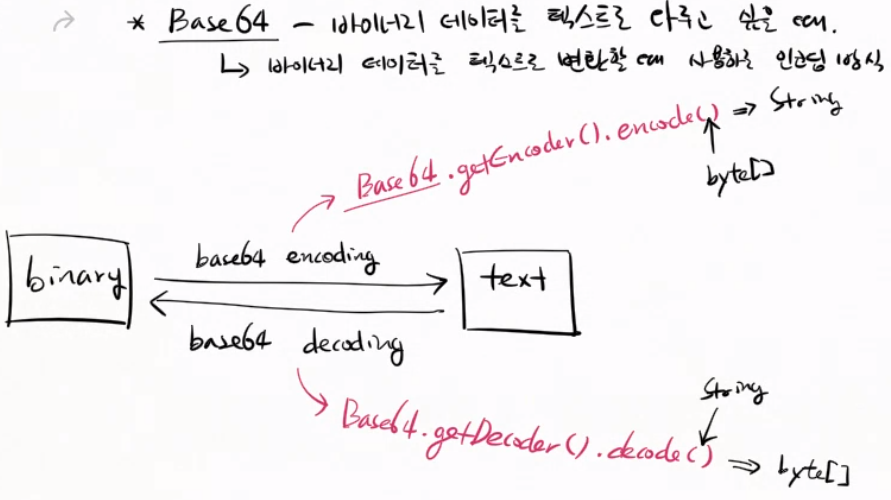 * Base64 - 바이너리 데이터를 텍스트로 다루고 싶을 때.
↳ 바이너리 데이터를 텍스트로 변환할 때 사용하는 인코딩 방식
Base64.getEncoder().encode() ⇒ String
byte[]
base64 encoding
binary
text
base64 decoding
String
Base64.getDecoder().decode() ⇒ byte[]